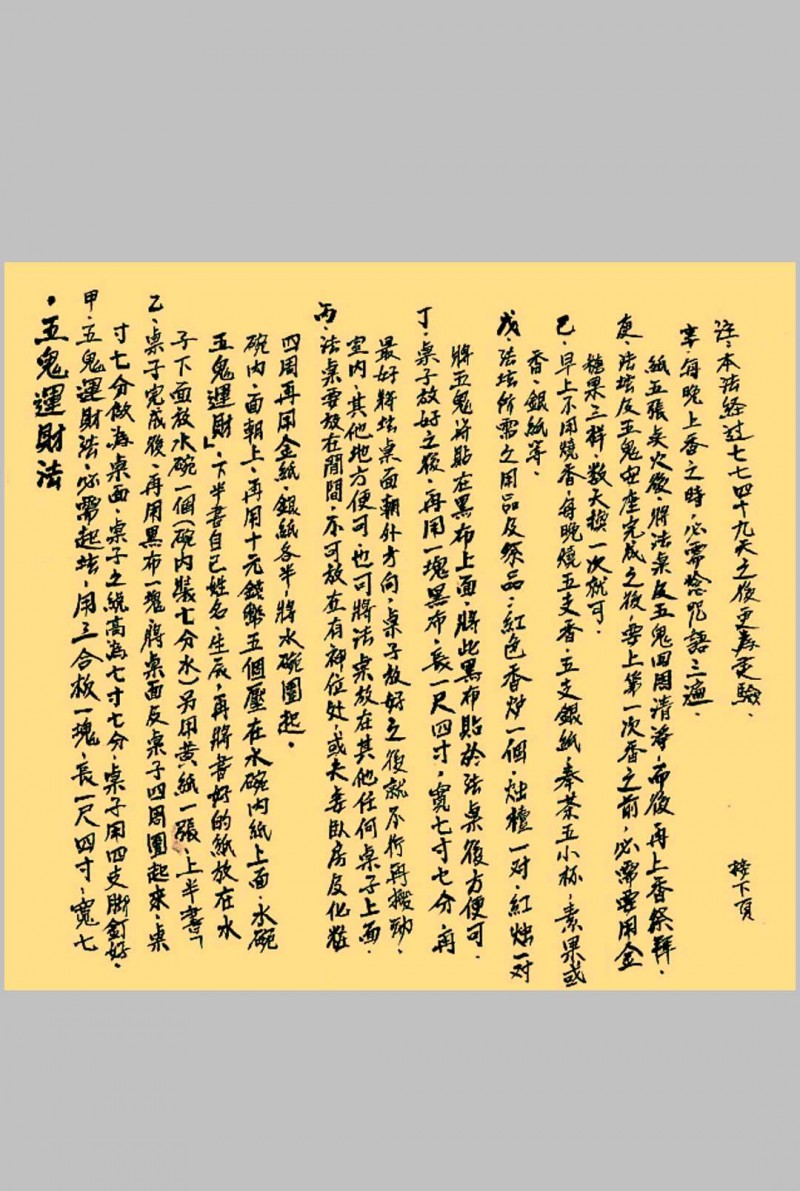 ・五鬼運財法
甲・五鬼運財法・必需起坛・用三合板一塊・長一尺四寸・寬七
寸七分做為桌面・桌子之總高為七寸七分・桌子用四支脚釘好・
乙・桌子完成後・再用黑布一塊・將桌面及桌子四周圍起來・桌
子下面放水碗一個(碗内裝七分水)另用黄紙一張・上半書「
五鬼運財」・下半書自己姓名・生辰・再將書好的紙放在水
碗内・面朝上・再用十元錢幣五個壓在水碗内紙上面・水碗
四周再用金紙・銀紙各半・將水碗圍起・
丙・法桌要放在閒間・不可放在有神位处・或夫妻臥房及化粧
室内・其他地方便可・也可將法桌放在其他任何桌子上面・
最好將坛桌面朝外方向・桌子放好之後就不行再搬動・
丁・桌子放好之後・再用一塊黑布・長一尺四寸・寬七寸七分・再
將五鬼符貼在黑布上面・將此黑布貼於法桌後方便可・
戊・法坛所需之用品及祭品:紅色香炉一個・烛檯一对・紅烛一对
香・銀紙等・
己・早上不用燒香・每晚燒五支香・五支銀紙・奉茶五小杯・素果或
糖果三样・数天換一次就可・
庚・法坛及五鬼安座完成之後・要上第一次香之前・必需要用金
紙五張点火後・將法桌及五鬼四周清淨・而後再上香祭拜・
辛・每晚上香之時・必需唸咒語三遍・
注・本法経过七七四十九天之後更為灵驗・
接下頁